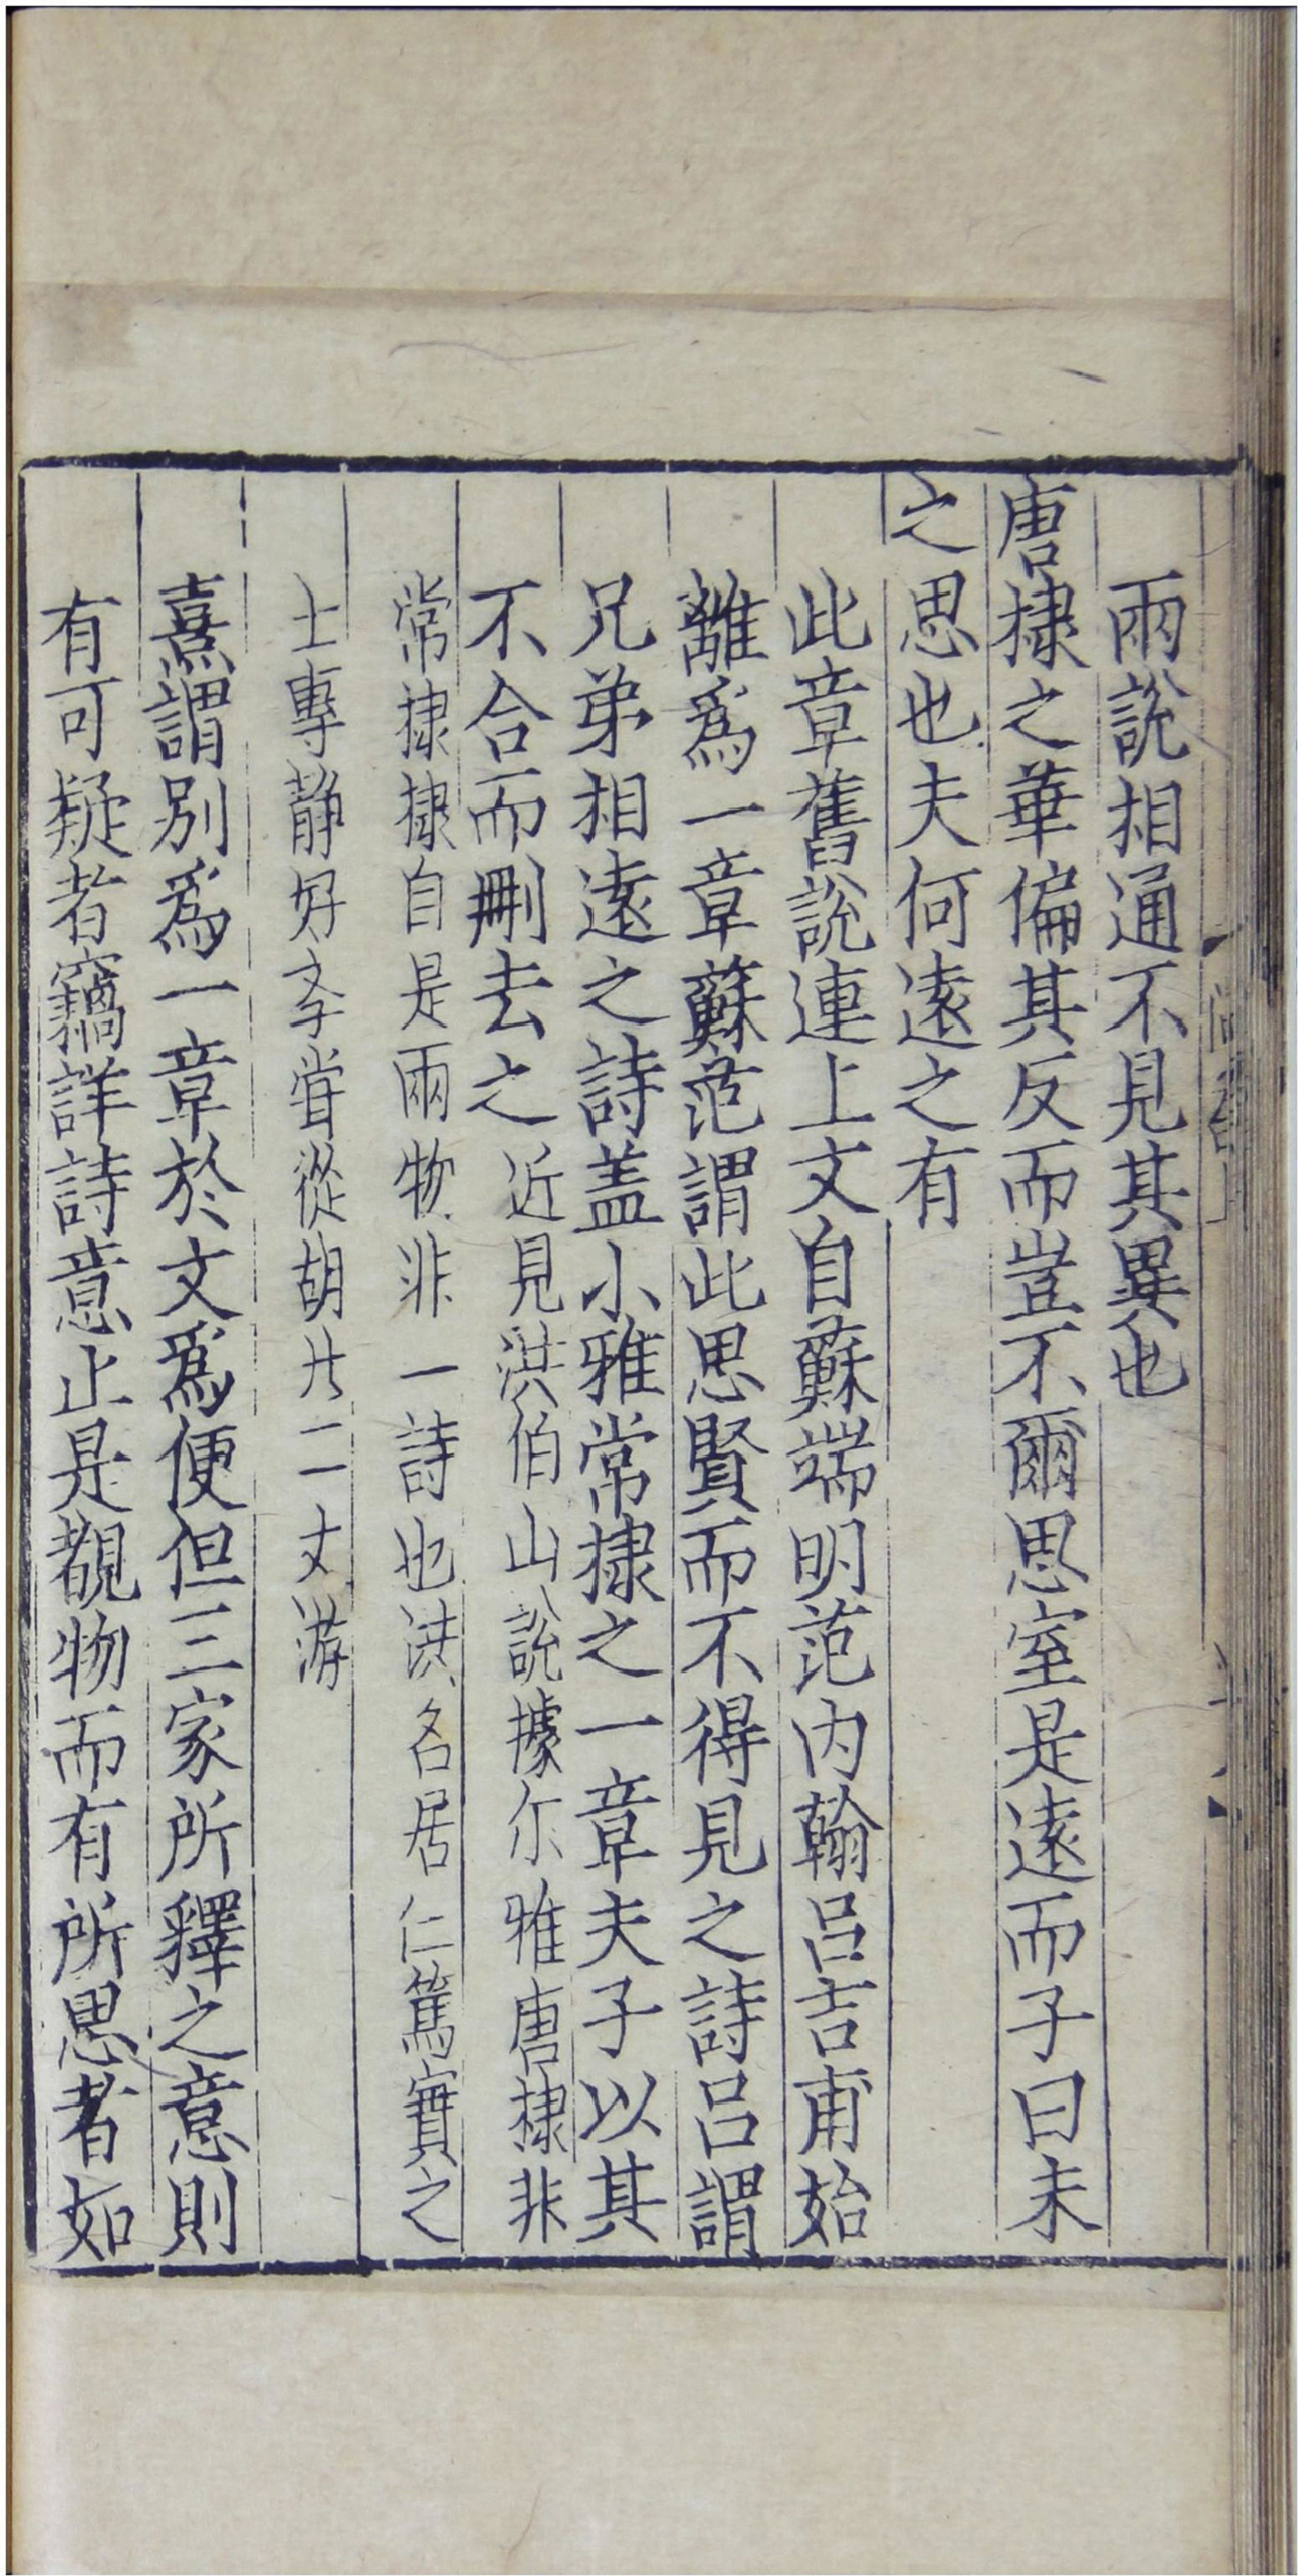 兩說相通不見其異也
唐棣之華偏其反而豈不爾思室是遠而子曰未
之思也夫何遠之有
此章舊說連上文自蘇端明范內翰呂吉甫始
離爲一章蘇范謂此思賢而不得見之詩呂謂
兄弟相遠之詩盖小雅常棣之一章夫子以其
不合而刪去之近見洪伯山說據尔雅唐棣非
常棣棣自是兩物非一詩也洪名居仁篤實之
士專靜好孝甞從胡廾二丈游
熹謂別爲一章於文爲便但三家所釋之意則
有可疑者竊詳詩意止是覩物而有所思者如